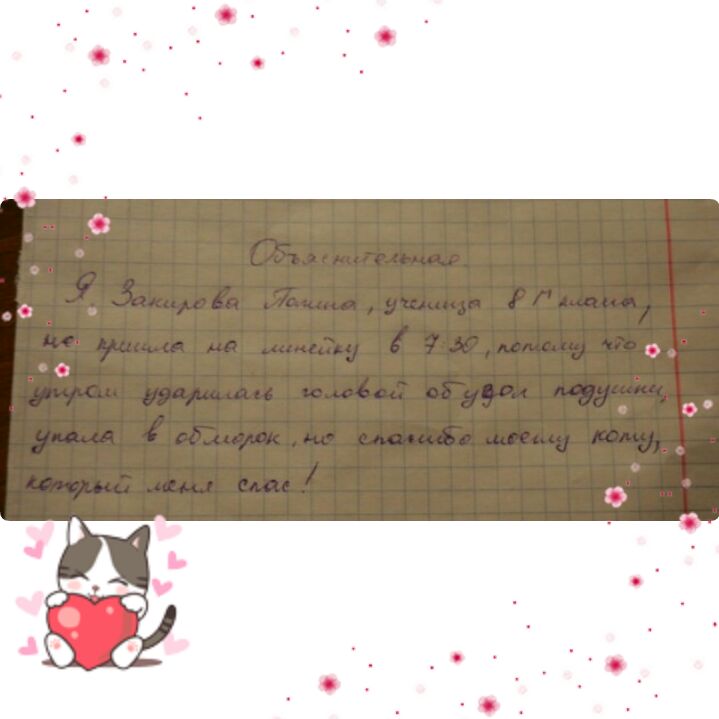 Объяснительная
Я, Закирова Полина, ученица 8 Г класса,
не пришла на линейку в 7:30, потому что
утром ударилась головой об угол подушки,
упала в обморок, но спасибо моему коту,
который меня спас!